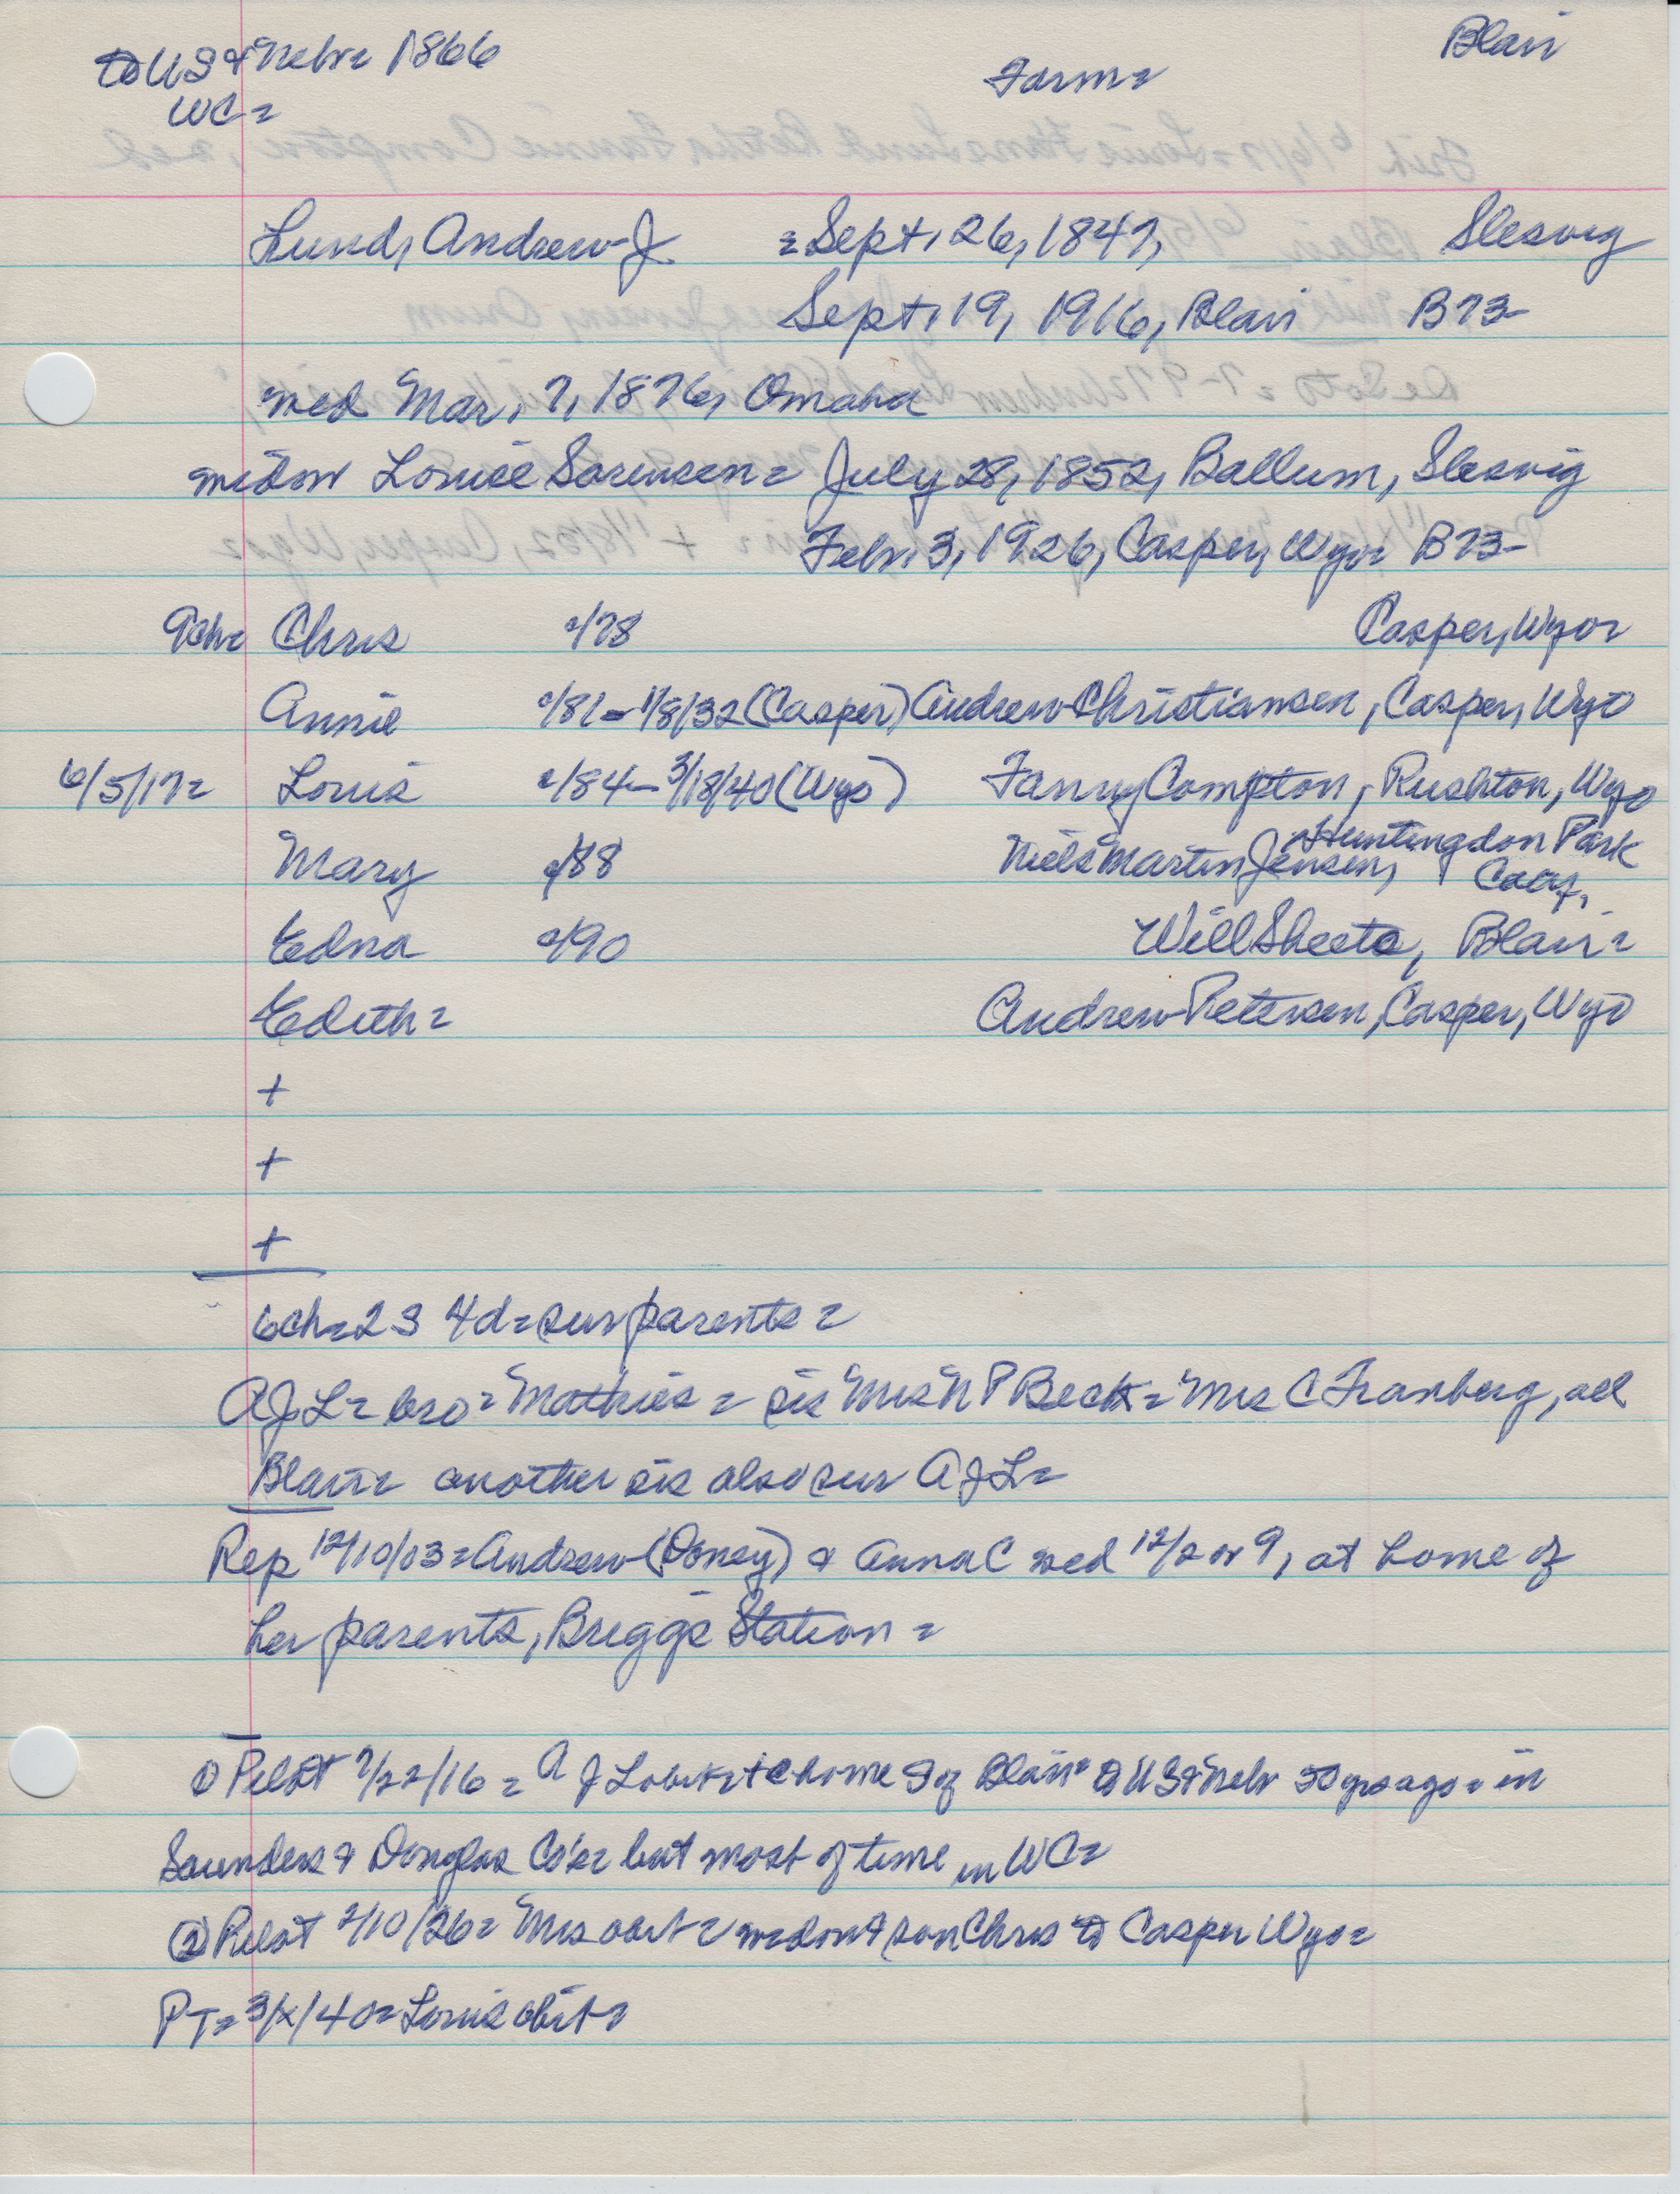 to US & Nebr= 1866
Farm=
Blair
WC=
Lund, Andrew J =Sept, 26, 1847, Slesvig
Sept, 19, 1916, Blair B73-
wed Mar, 7, 1876, Omaha
widow Louise Sorensen= July 28, 1852, Ballum, Slesvig
Febr. 3, 1926, Casper, Wyo= B73-
9ch= Chris =/78 Casper, Wyo=
Annie =/81-1/8/32 (Casper) Andrew Christiansen, Casper, Wyo
6/5/17= Louis =/84-3/18/40 (Wyo) Fanny Compton, Rushton, Wyo
Mary =/88 Niels Martin Jensen, Huntingdon Park
Calif,
Edna =/90 Will Sheets, Blair=
Edith= Andrew Petersen, Casper, Wyo
+
+
+
6ch=2S 4d=sur parents=
AJL= bro= Mathies= sis Mrs N P Beck= Mrs C Franberg, all
Blair= another sis also sur AJL=
Rep 12/10/03=Andrew & Anna C wed 12/2 or 9, at home of
her parents, Briggs Station=
① Pilot 9/22/16= A J L obit= + @ home of Blair= to US & Nebr 50 yrs ago= in
Saunders & Douglas Co's= but most of time in WC=
② Pilot 2/10/26= Mrs obit= widow & son Chris to Casper Wyo=
PT=3/x/40= Louis obit=